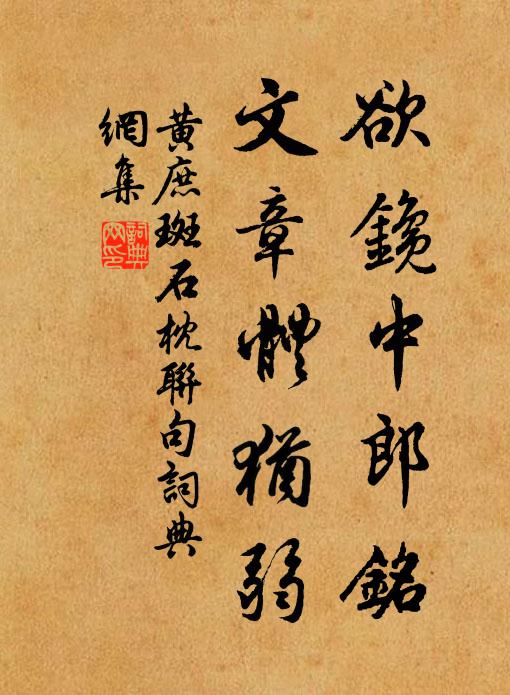 欲鑱中郎銘
文章體猶弱
黃庶斑石枕聯句詞典
網集
詞典
网印